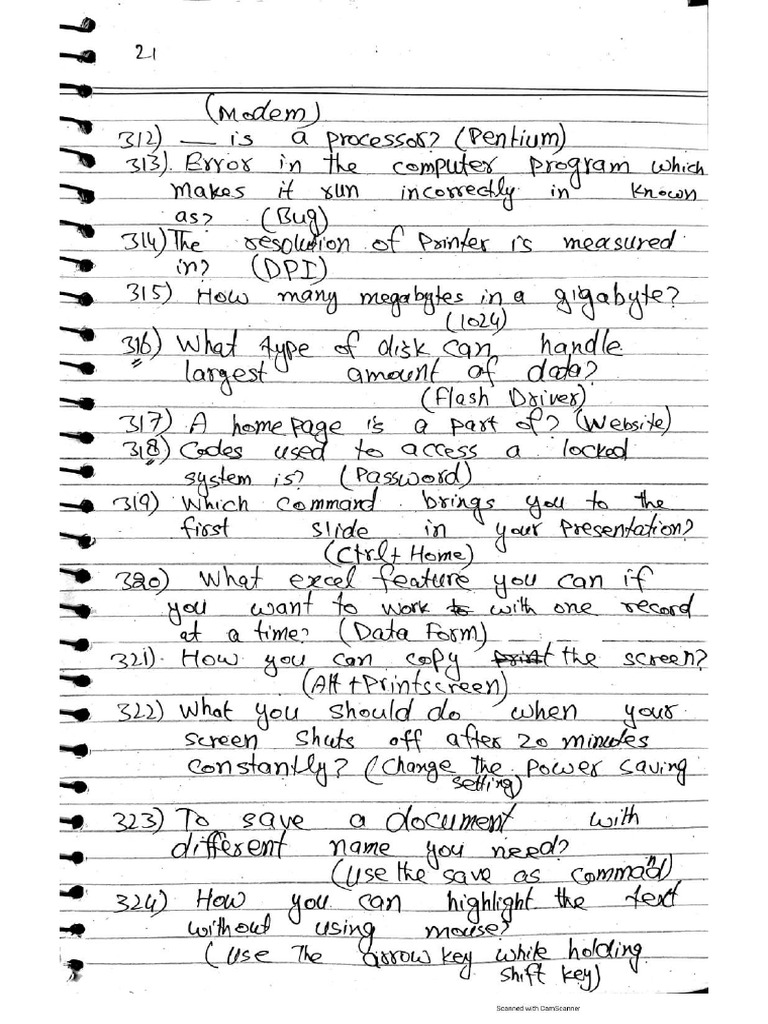 21
(Modem)
312) __ is a processor? (Pentium)
313). Error in the computer program which
makes it run incorrectly in known
as? (Bug)
314) The resolution of printer is measured
in? (DPI)
315) How many megabytes in a gigabyte?
(1024)
316) What type of disk can handle
largest amount of data?
(Flash Driver)
317) A home page is a part of? (Website)
318) Codes used to access a locked
system is? (Password)
319) Which command brings you to the
first slide in your presentation?
(Ctrl + Home)
320) What excel feature you can if
you want to work to with one record
at a time? (Data Form)
321). How you can copy print the screen?
(Alt + Printscreen)
322) What you should do when your
screen shuts off after 20 minutes
constantly? (Change the power saving
setting)
323) To save a document with
different name you need?
(Use the save as command)
324) How you can highlight the text
without using mouse?
(Use The arrow key while holding
shift key)
Scanned with CamScanner